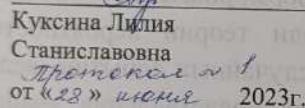 Куксина Лилия
Станиславовна
Протокол № 1
от «28» июня 2023г